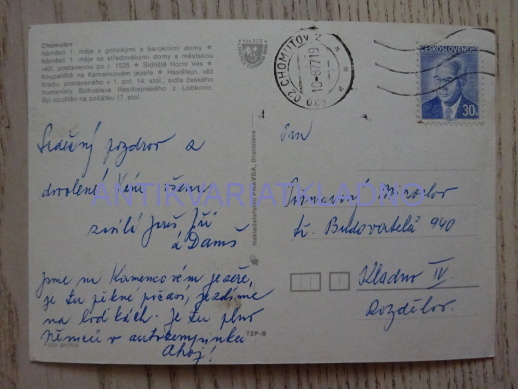 Chomutov
Náměstí 1. máje s gotickými a barokními domy ★
Náměstí 1. máje se středověkými domy a městskou
věží, postavenou po r. 1525 ★ Sídliště Horní Ves ★
Koupaliště na Kamencovém jezeře ★ Hasištejn, věž
hradu postaveného v 1. pol. 14. stol., sídla českého
humanisty Bohuslava Hasištejnského z Lobkovic.
Byl opuštěn na počátku 17. stol.
02 CHOMUTOV 2
ČESKOSLOVENSKO
30
Srdečný pozdrav z
dovolené Vám všem
Jiří
Jsme na Kamencovém jezeře,
je tu pěkné počasí, jezdíme
na loďkách. Je tu plno
Němců v autokempinku
Ahoj!
Nakladatelství PRAVDA, Bratislava
TZP-B
Miroslav
tř. Budovatelů 940
Kladno IV.
Rozdělov.
ANTIKVARIATKLADNO